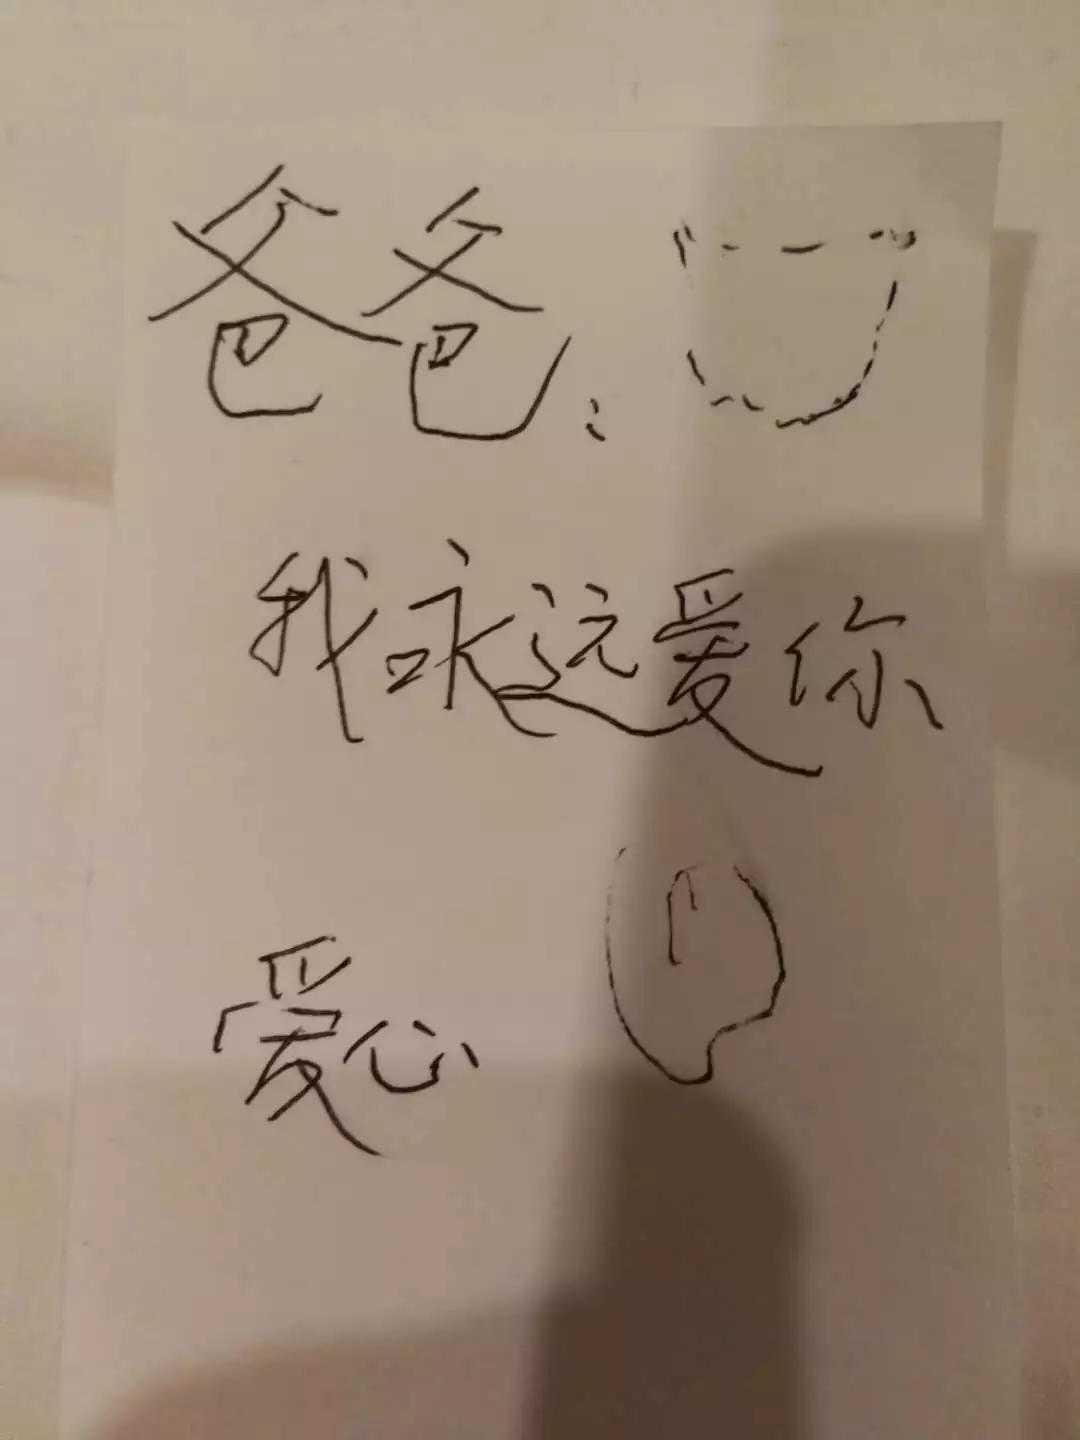 爸爸:
我永远爱你
爱心